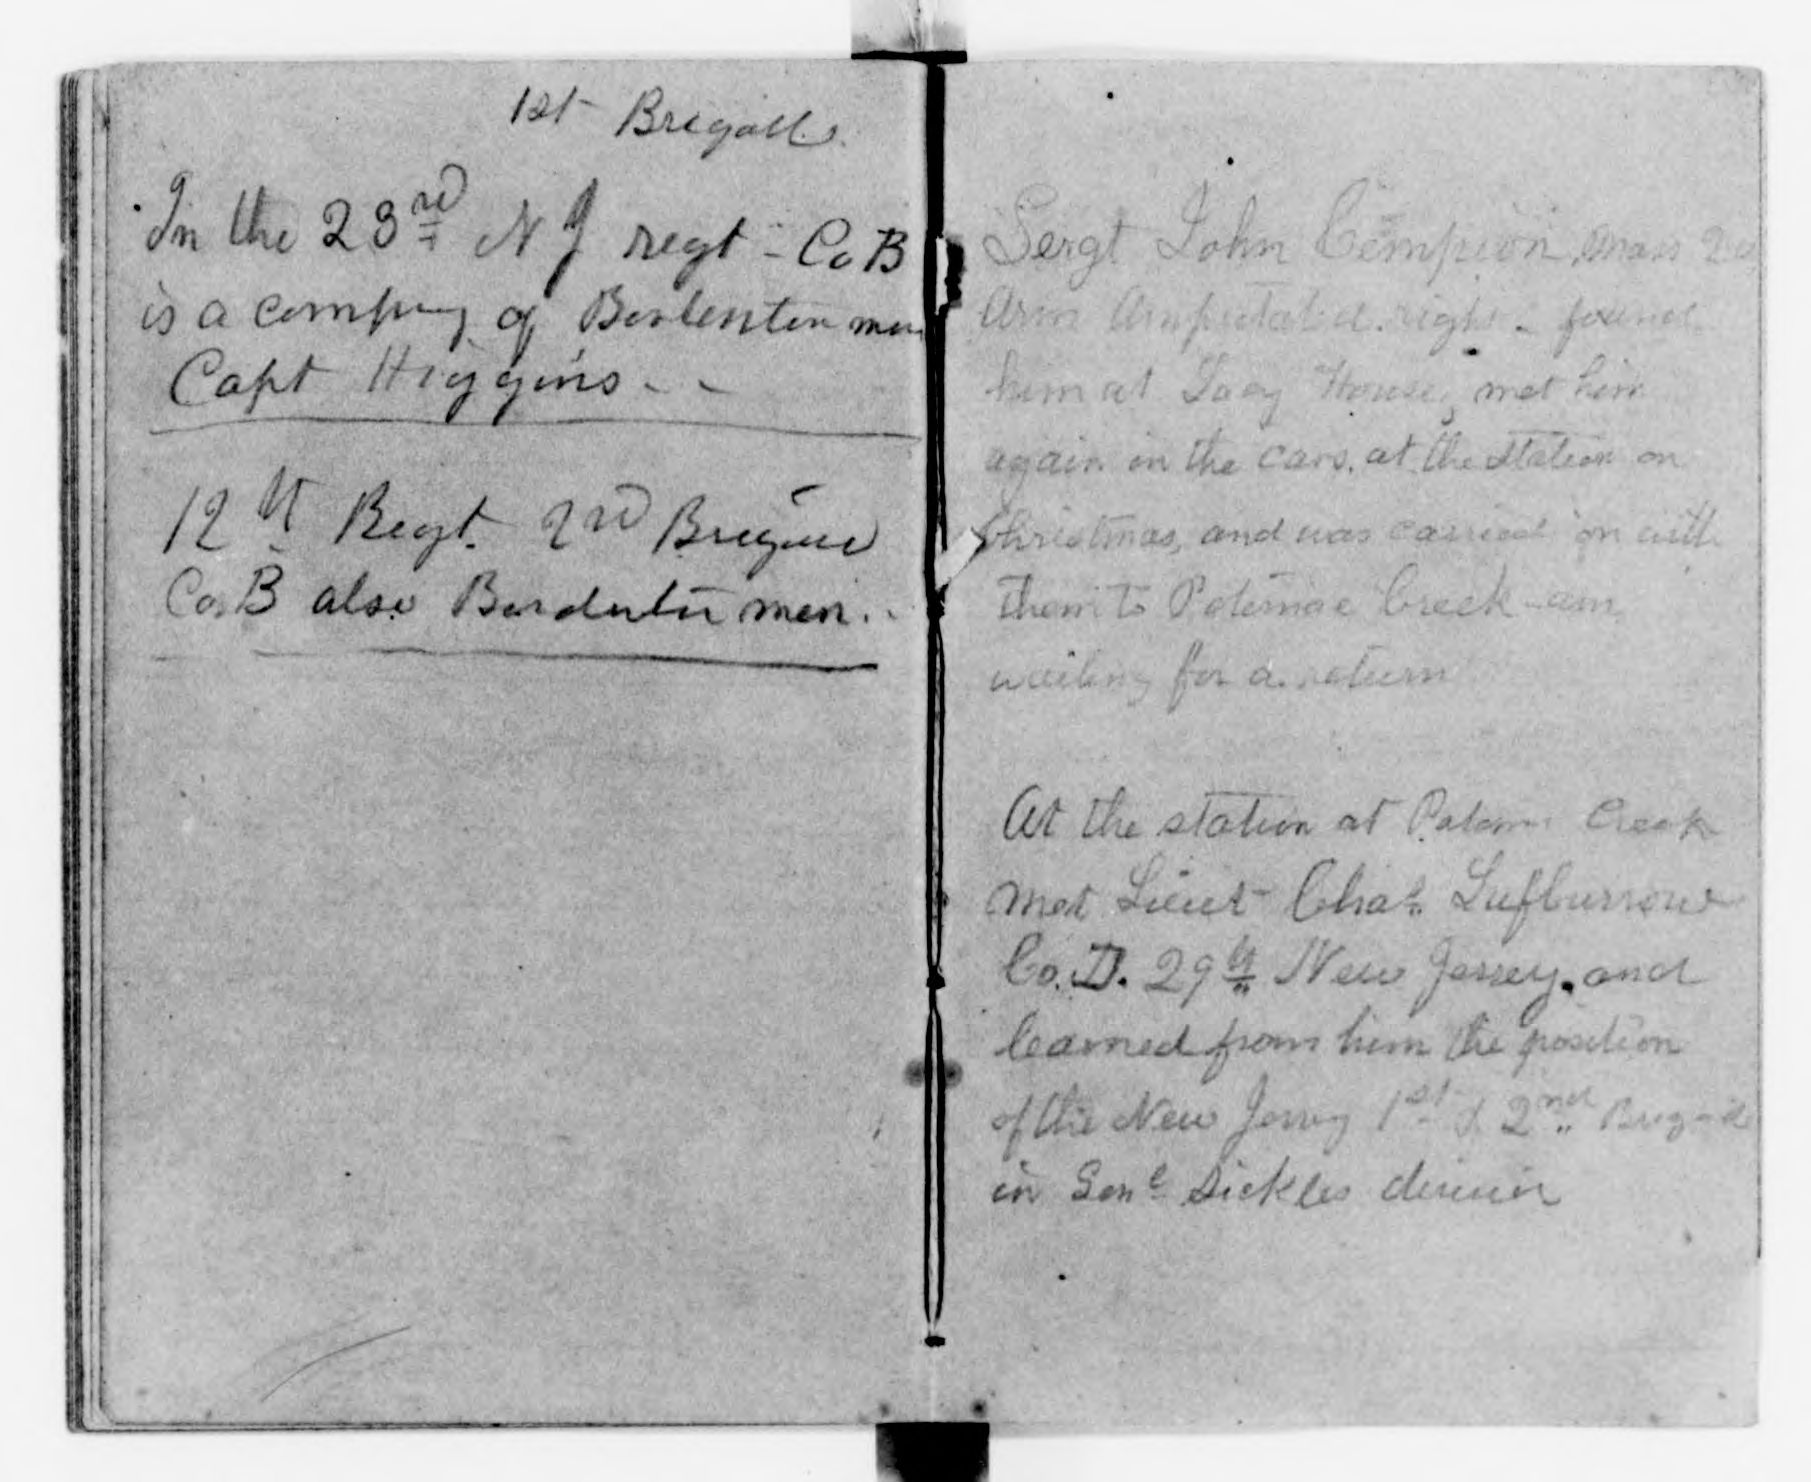 1st Brigade.
In the 23rd N J regt - Co B
is a company of Bordenton men
Capt Higgins - -
12th Regt. 2nd Brigade
Co. B also Bordenton men. -
Sergt John Mass
Arm Amputated. right - found
him at Lacy House, met him
again in the cars. at the station on
Christmas, and was carried on with
them to Potomac Creek - am
waiting for a return
At the station at Potomac Creek
met Lieut Chas. Lufburrow
Co. D. 29th New Jersey. and
learned from him the position
of the New Jersey 1st & 2nd Brigade
in Genl Sickles division